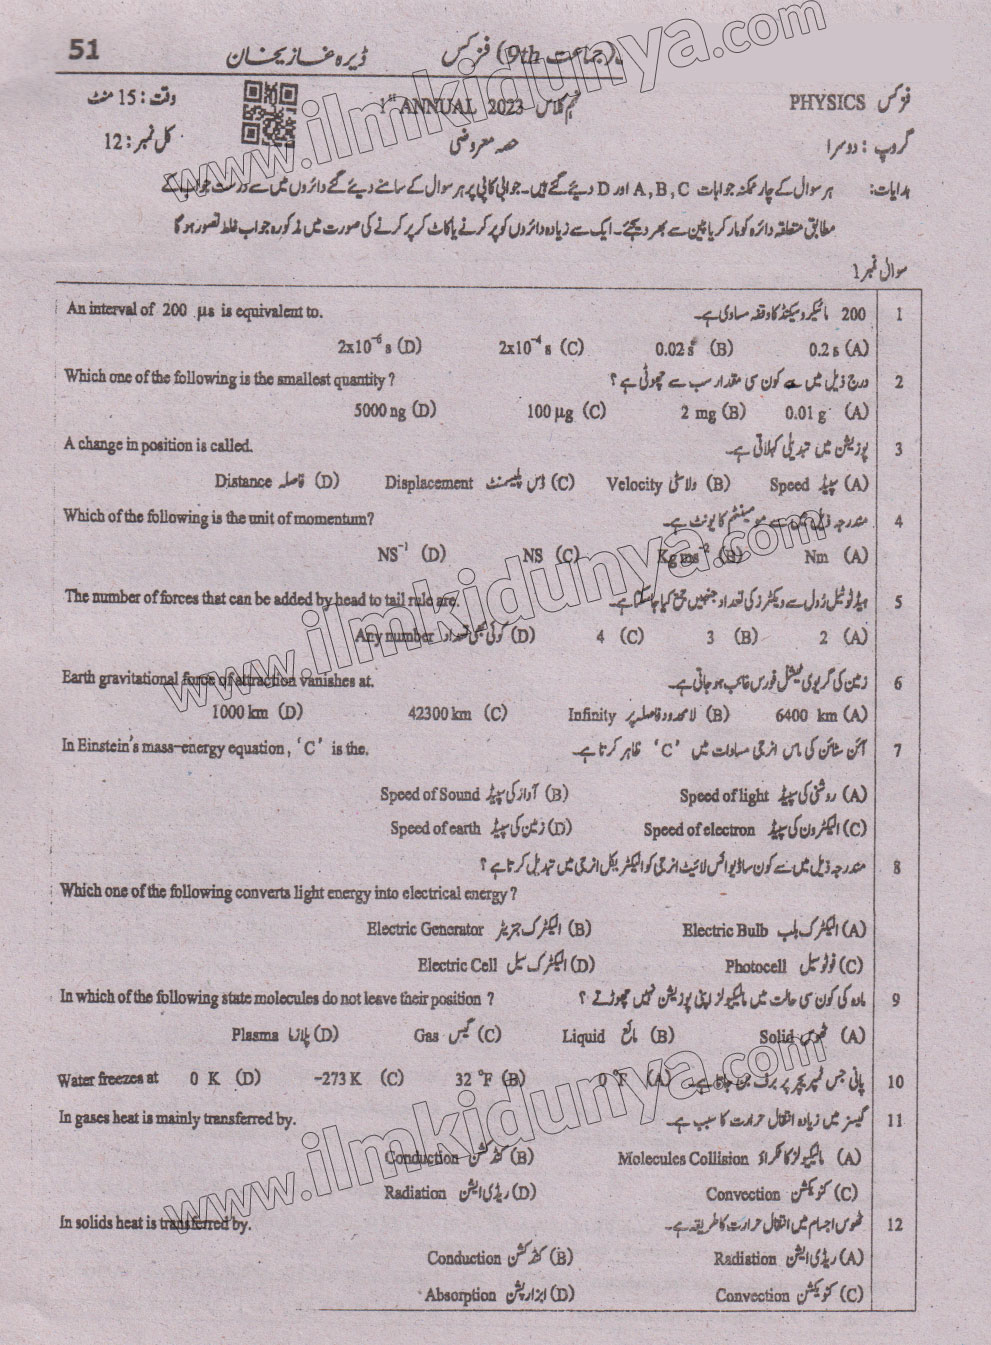 51
ڈیرہ غازیخان
(جماعت 9th) فزکس
وقت: 15 منٹ
1st ANNUAL 2023- نہم کلاس
PHYSICS فزکس
کل نمبر: 12
حصہ معروضی
گروپ: دوسرا
ہدایات: ہر سوال کے چار ممکنہ جوابات A, B, C اور D دیئے گئے ہیں۔ جوابی کاپی پر ہر سوال کے سامنے دیئے گئے دائروں میں سے درست جواب کے
مطابق متعلقہ دائرہ کو مارکر یا پین سے بھر دیجئے۔ ایک سے زیادہ دائروں کو پر کرنے یا کاٹ کر پر کرنے کی صورت میں مذکورہ جواب غلط تصور ہو گا
سوال نمبر 1
An interval of 200 μs is equivalent to. 200 مائیکرو سیکنڈ کا وقفہ مساوی ہے۔ 1
2x10⁻⁶ s (D) 2x10⁻⁴ s (C) 0.02 s (B) 0.2 s (A)
Which one of the following is the smallest quantity? درج ذیل میں سے کون سی مقدار سب سے چھوٹی ہے؟ 2
5000 ng (D) 100 μg (C) 2 mg (B) 0.01 g (A)
A change in position is called. پوزیشن میں تبدیلی کہلاتی ہے۔ 3
Distance فاصلہ (D) Displacement ڈس پلیسمنٹ (C) Velocity ولاسٹی (B) Speed سپیڈ (A)
Which of the following is the unit of momentum? مندرجہ ذیل میں سے مومینٹم کا یونٹ ہے۔ 4
NS⁻¹ (D) NS (C) Kgms⁻² (B) Nm (A)
The number of forces that can be added by head to tail rule are. ہیڈ ٹو ٹیل رول سے ویکٹرز کی تعداد جنہیں جمع کیا جا سکتا ہے۔ 5
Any number کوئی بھی تعداد (D) 4 (C) 3 (B) 2 (A)
Earth gravitational force of attraction vanishes at. زمین کی گریوی ٹیشنل فورس غائب ہو جاتی ہے۔ 6
1000 km (D) 42300 km (C) Infinity لامحدود فاصلہ پر (B) 6400 km (A)
In Einstein's mass-energy equation, 'C' is the. آئن سٹائن کی ماس انرجی مساوات میں 'C' ظاہر کرتا ہے۔ 7
Speed of Sound آواز کی سپیڈ (B) Speed of light روشنی کی سپیڈ (A)
Speed of earth زمین کی سپیڈ (D) Speed of electron الیکٹرون کی سپیڈ (C)
مندرجہ ذیل میں سے کون سا ڈیوائس لائیٹ انرجی کو الیکٹریکل انرجی میں تبدیل کرتا ہے؟ 8
Which one of the following converts light energy into electrical energy?
Electric Generator الیکٹرک جنریٹر (B) Electric Bulb الیکٹرک بلب (A)
Electric Cell الیکٹرک سیل (D) Photocell فوٹوسیل (C)
In which of the following state molecules do not leave their position? مادہ کی کون سی حالت میں مالیکیولز اپنی پوزیشن نہیں چھوڑتے؟ 9
Plasma پلازما (D) Gas گیس (C) Liquid مائع (B) Solid ٹھوس (A)
Water freezes at 0 K (D) -273 K (C) 32 °F (B) 0 °F (A) پانی جس ٹمپریچر پر برف بن جاتا ہے۔ 10
In gases heat is mainly transferred by. گیسز میں زیادہ انتقال حرارت کا سبب ہے۔ 11
Conduction کنڈکشن (B) Molecules Collision مالیکیولز کا ٹکراؤ (A)
Radiation ریڈی ایشن (D) Convection کنویکشن (C)
In solids heat is transferred by. ٹھوس اجسام میں انتقال حرارت کا طریقہ ہے۔ 12
Conduction کنڈکشن (B) Radiation ریڈی ایشن (A)
Absorption ابزارپشن (D) Convection کنویکشن (C)
www.ilmkidunya.com
www.ilmkidunya.com
www.ilmkidunya.com